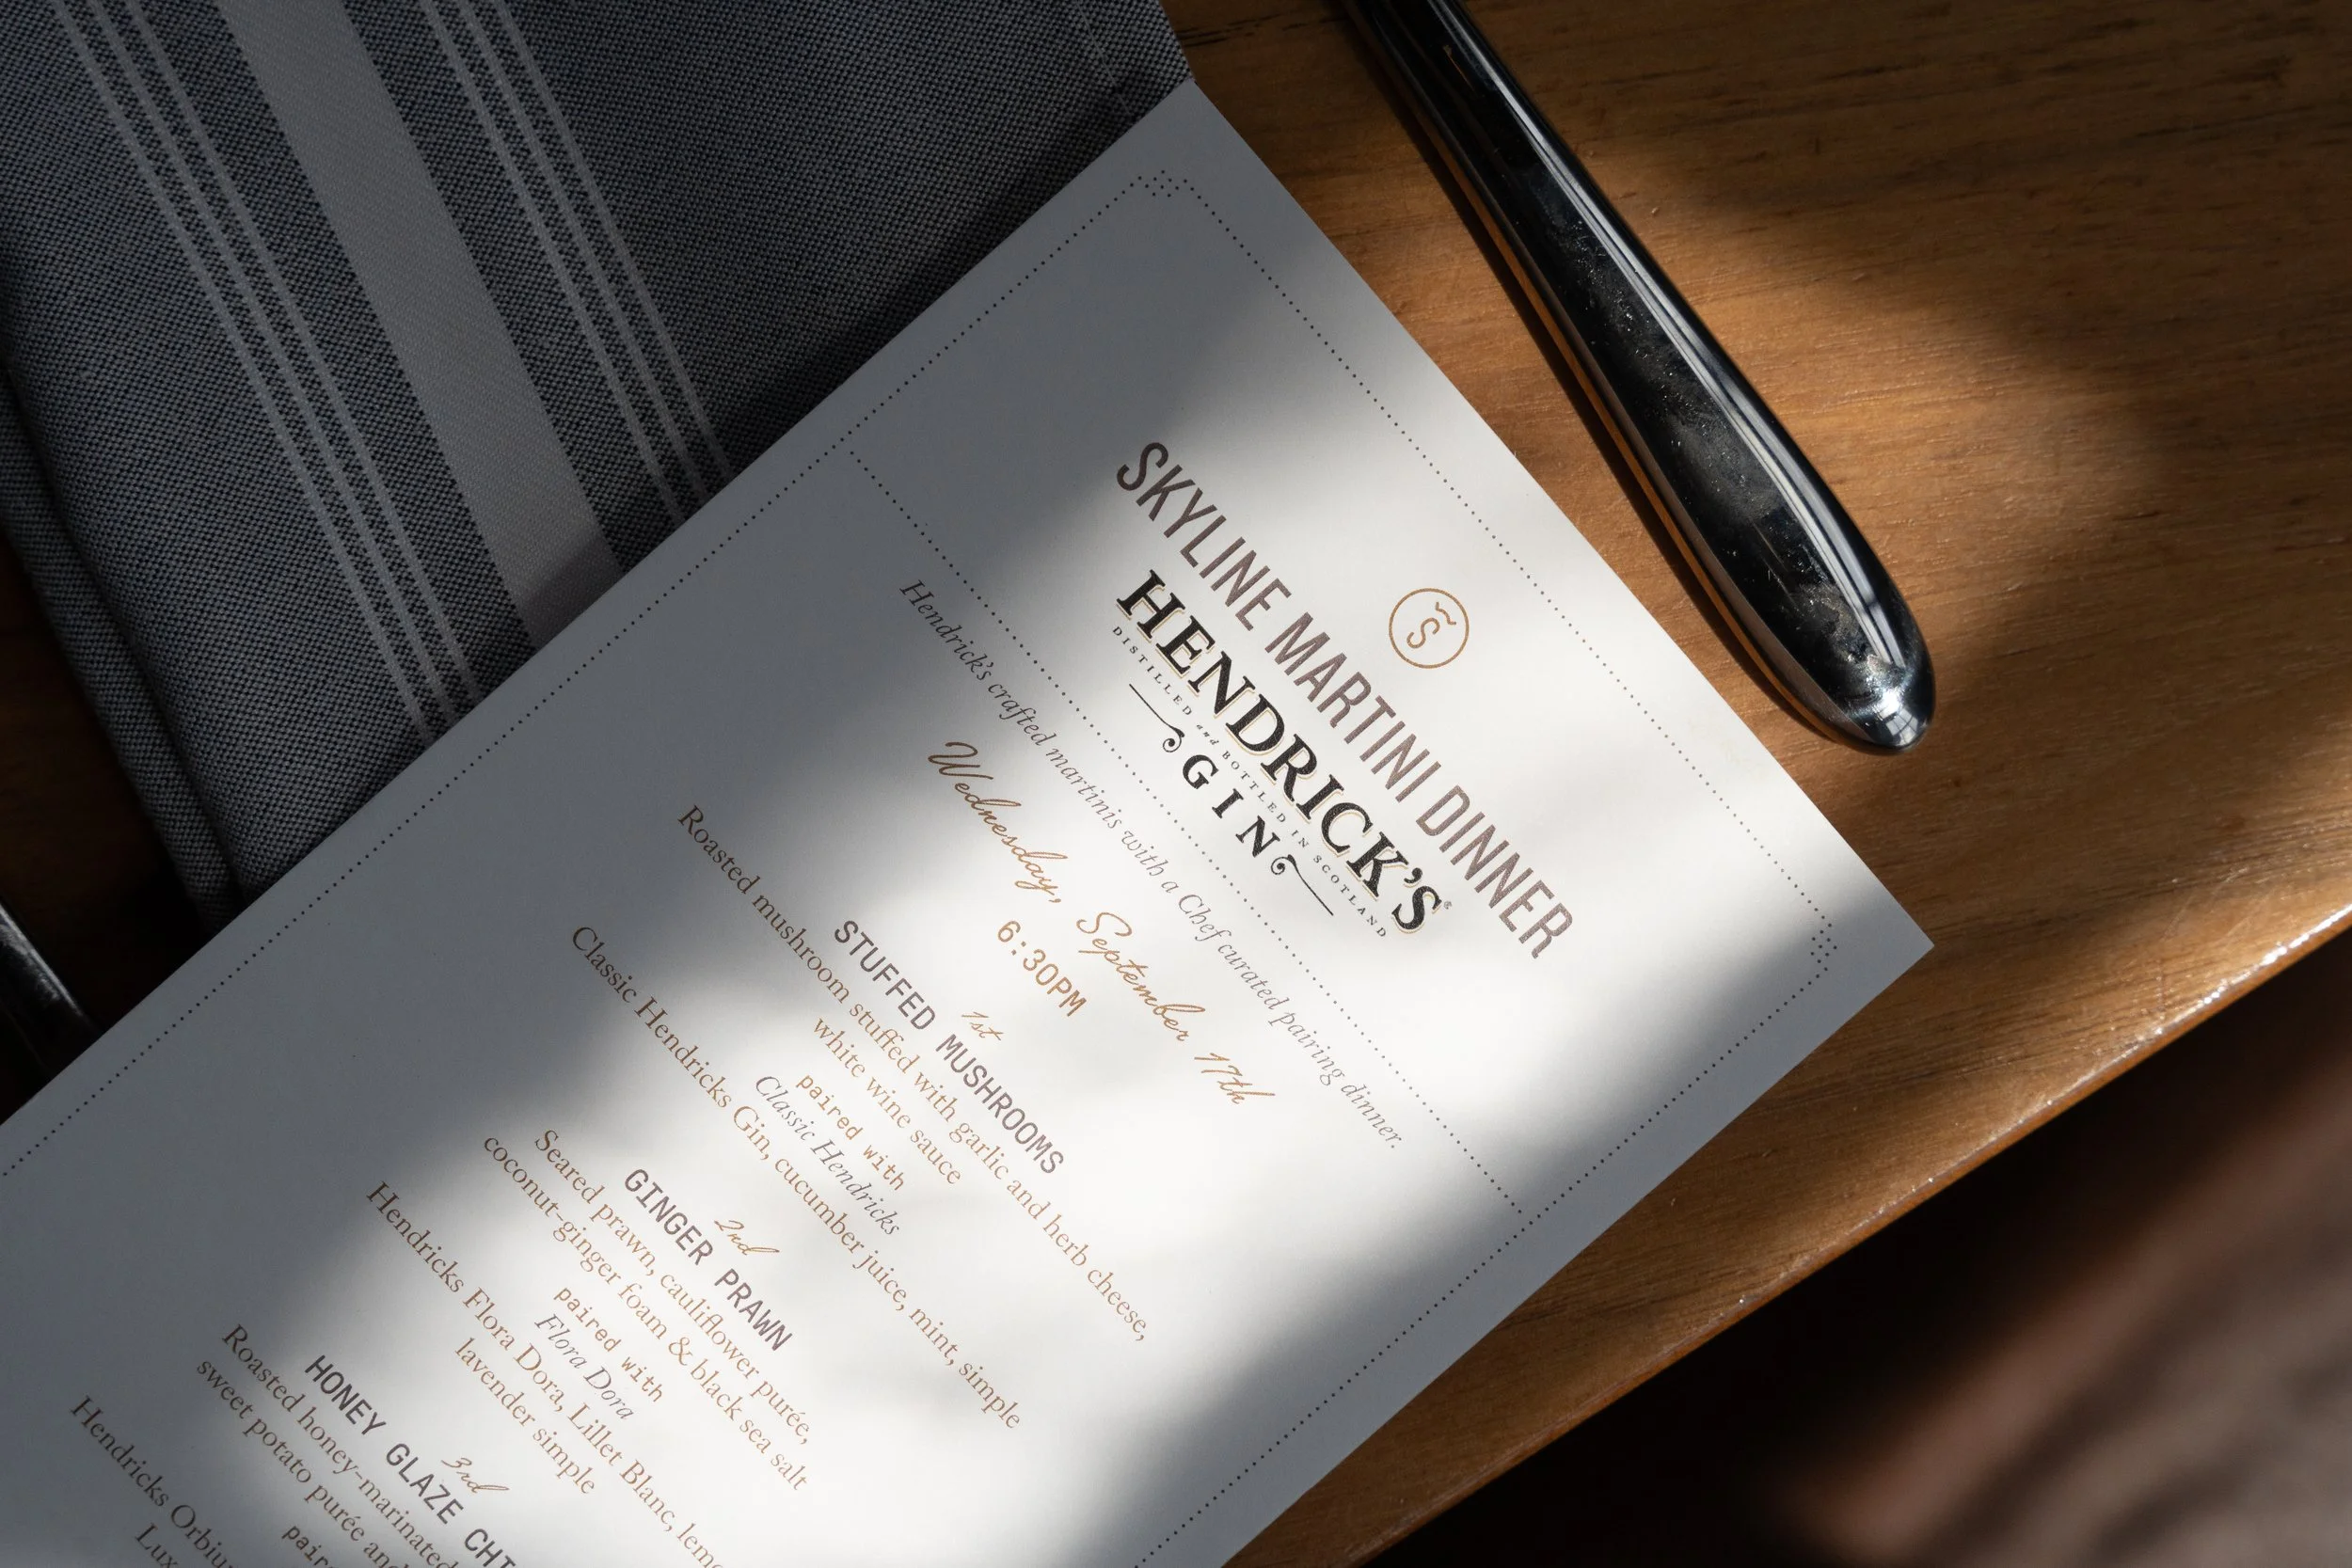 S
SKYLINE MARTINI DINNER
HENDRICK'S®
DISTILLED and BOTTLED IN SCOTLAND
GIN
Hendrick's crafted martinis with a Chef curated pairing dinner.
Wednesday, September 17th
6:30PM
1st
STUFFED MUSHROOMS
Roasted mushroom stuffed with garlic and herb cheese,
white wine sauce
paired with
Classic Hendricks
Classic Hendricks Gin, cucumber juice, mint, simple
2nd
GINGER PRAWN
Seared prawn, cauliflower purée,
coconut-ginger foam & black sea salt
paired with
Flora Dora
Hendricks Flora Dora, Lillet Blanc,
lavender simple
3rd
HONEY GLAZE
Roasted honey-marinated
sweet potato purée and
Hendricks